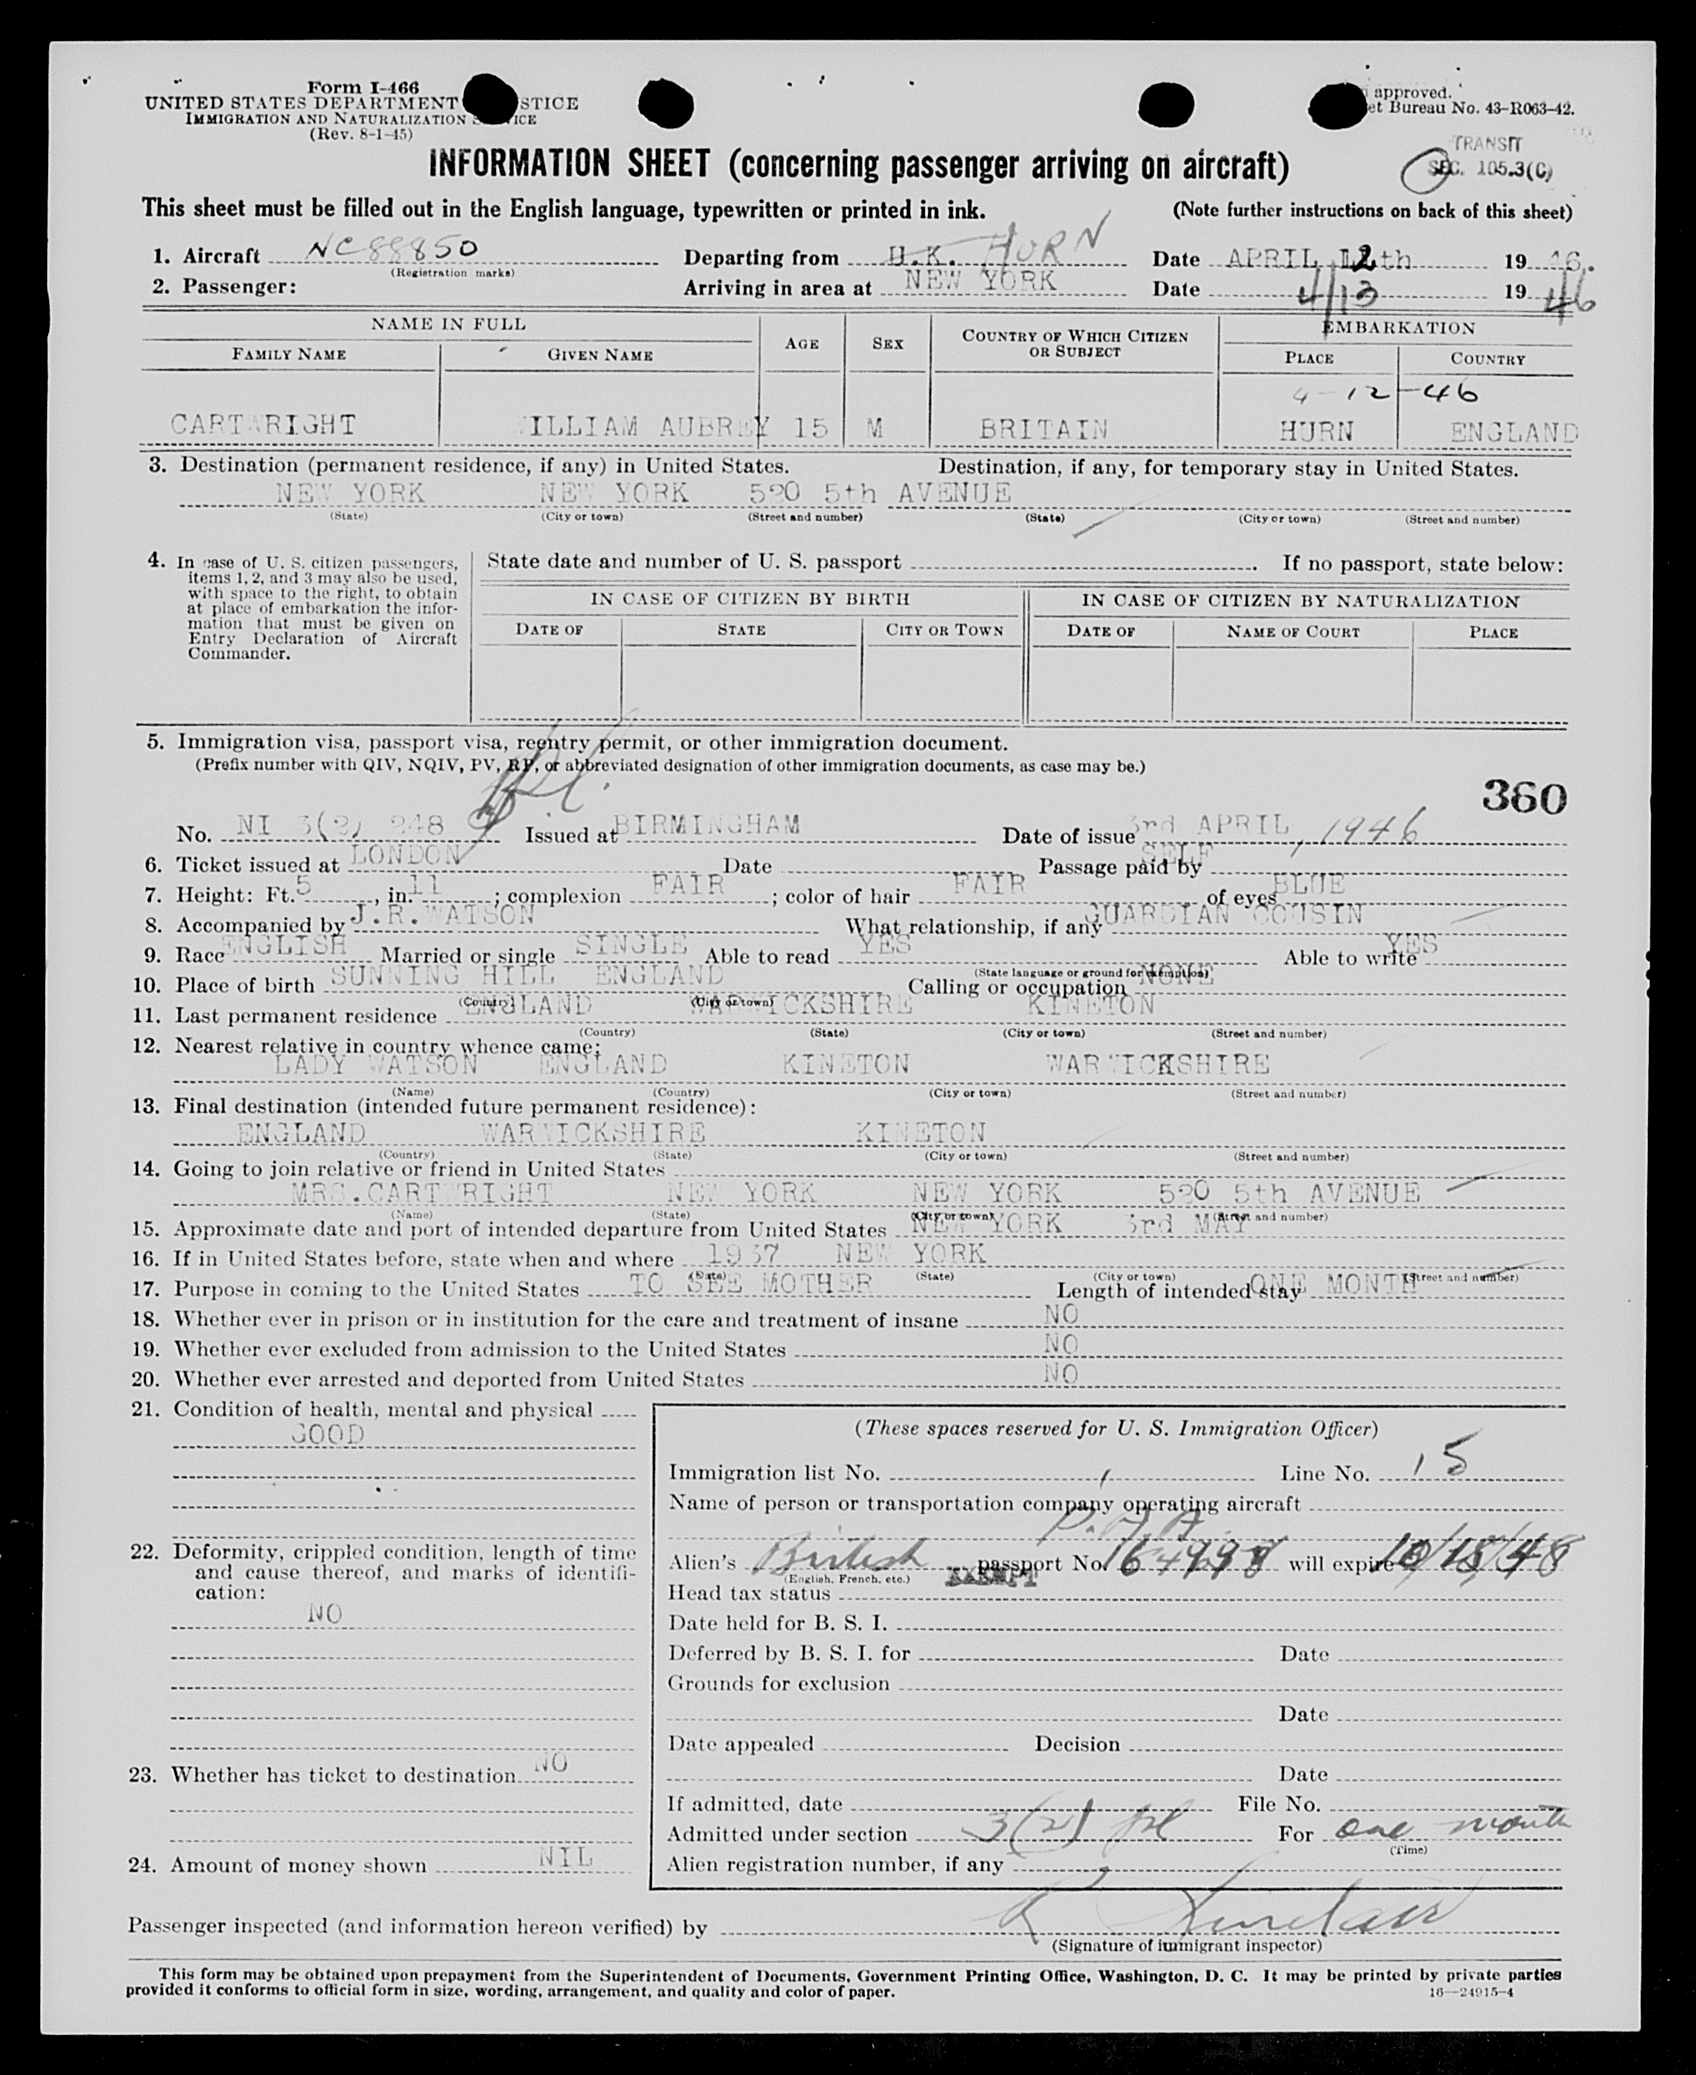 Form I-466
UNITED STATES DEPARTMENT STICE
IMMIGRATION AND NATURALIZATION S ICE
(Rev. 8-1-45)
approved.
et Bureau No. 43-R063-42.
TRANSIT
SEC. 105.3(C)
INFORMATION SHEET (concerning passenger arriving on aircraft)
This sheet must be filled out in the English language, typewritten or printed in ink. (Note further instructions on back of this sheet)
1. Aircraft NC88850 Departing from U.K. HURN Date APRIL 12th 1946.
(Registration marks)
2. Passenger: Arriving in area at NEW YORK Date 4/13 1946
NAME IN FULL AGE SEX COUNTRY OF WHICH CITIZEN OR SUBJECT EMBARKATION
FAMILY NAME GIVEN NAME PLACE COUNTRY
4-12-46
CARTWRIGHT WILLIAM AUBREY 15 M BRITAIN HURN ENGLAND
3. Destination (permanent residence, if any) in United States. Destination, if any, for temporary stay in United States.
NEW YORK NEW YORK 520 5th AVENUE
(State) (City or town) (Street and number) (State) (City or town) (Street and number)
4. In case of U. S. citizen passengers, items 1, 2, and 3 may also be used, with space to the right, to obtain at place of embarkation the information that must be given on Entry Declaration of Aircraft Commander.
State date and number of U. S. passport . If no passport, state below:
IN CASE OF CITIZEN BY BIRTH IN CASE OF CITIZEN BY NATURALIZATION
DATE OF STATE CITY OR TOWN DATE OF NAME OF COURT PLACE
5. Immigration visa, passport visa, reentry permit, or other immigration document.
(Prefix number with QIV, NQIV, PV, RP, or abbreviated designation of other immigration documents, as case may be.)
360
No. NI 3(2) 248 Issued at BIRMINGHAM Date of issue 3rd APRIL, 1946
6. Ticket issued at LONDON Date Passage paid by SELF
7. Height: Ft. 5, in. 11; complexion FAIR; color of hair FAIR of eyes BLUE
8. Accompanied by J.R.WATSON What relationship, if any GUARDIAN COUSIN
9. Race ENGLISH Married or single SINGLE Able to read YES Able to write YES
(State language or ground for exemption)
10. Place of birth SUNNING HILL ENGLAND Calling or occupation NONE
(Country) (City or town)
11. Last permanent residence ENGLAND WARWICKSHIRE KINETON
(Country) (State) (City or town) (Street and number)
12. Nearest relative in country whence came:
LADY WATSON ENGLAND KINETON WARWICKSHIRE
(Name) (Country) (City or town) (Street and number)
13. Final destination (intended future permanent residence):
ENGLAND WARWICKSHIRE KINETON
(Country) (State) (City or town) (Street and number)
14. Going to join relative or friend in United States
MRS.CARTWRIGHT NEW YORK NEW YORK 520 5th AVENUE
(Name) (State) (City or town) (Street and number)
15. Approximate date and port of intended departure from United States NEW YORK 3rd MAY
16. If in United States before, state when and where 1937 NEW YORK
(Date) (State) (City or town) (Street and number)
17. Purpose in coming to the United States TO SEE MOTHER Length of intended stay ONE MONTH
18. Whether ever in prison or in institution for the care and treatment of insane NO
19. Whether ever excluded from admission to the United States NO
20. Whether ever arrested and deported from United States NO
21. Condition of health, mental and physical
GOOD
22. Deformity, crippled condition, length of time and cause thereof, and marks of identification:
NO
23. Whether has ticket to destination NO
24. Amount of money shown NIL
(These spaces reserved for U. S. Immigration Officer)
Immigration list No. 1 Line No. 15
Name of person or transportation company operating aircraft
P.A.A.
Alien's British passport No. 164998 will expire 10/18/48
(English, French, etc.)
Head tax status EXEMPT
Date held for B. S. I.
Deferred by B. S. I. for Date
Grounds for exclusion
Date
Date appealed Decision
Date
If admitted, date File No.
Admitted under section 3(2) For one month
(Time)
Alien registration number, if any
Passenger inspected (and information hereon verified) by R Sinclair
(Signature of immigrant inspector)
This form may be obtained upon prepayment from the Superintendent of Documents, Government Printing Office, Washington, D. C. It may be printed by private parties
provided it conforms to official form in size, wording, arrangement, and quality and color of paper. 16—24915-4